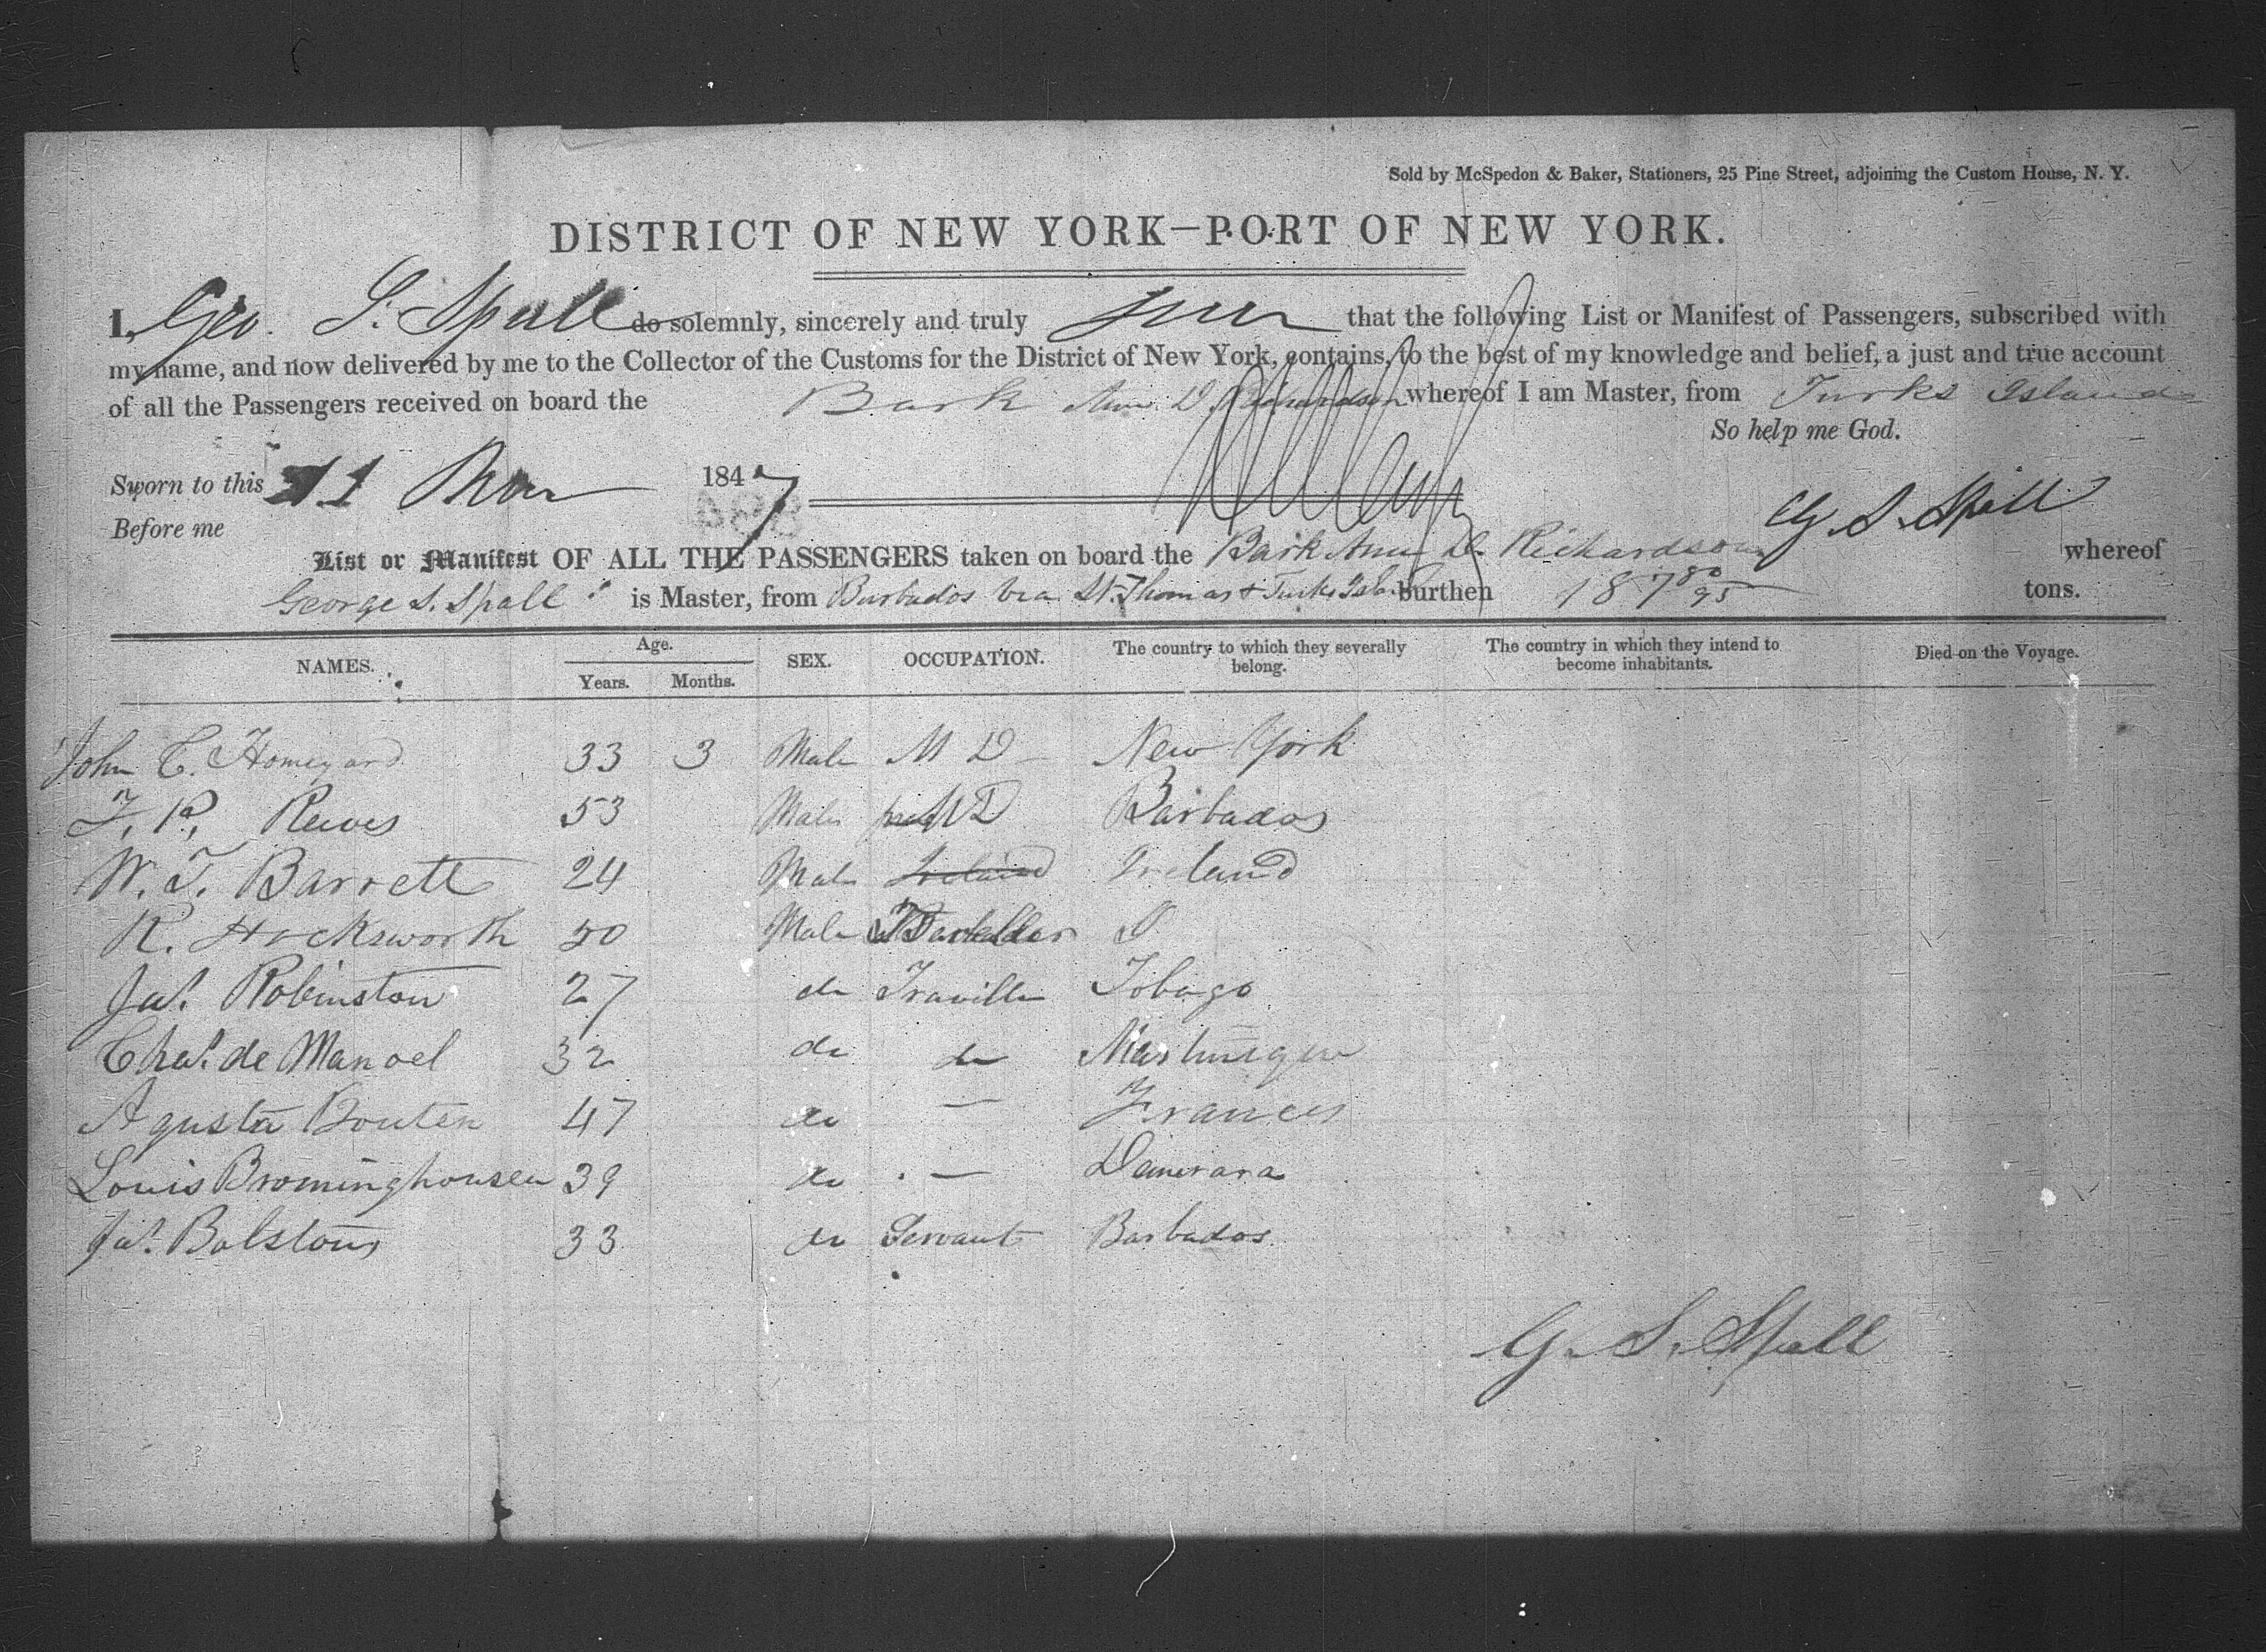 Sold by McSpedon & Baker, Stationers, 25 Pine Street, adjoining the Custom House, N. Y.
DISTRICT OF NEW YORK—PORT OF NEW YORK.
I, Geo. S. Spall do solemnly, sincerely and truly swear that the following List or Manifest of Passengers, subscribed with
my name, and now delivered by me to the Collector of the Customs for the District of New York, contains, to the best of my knowledge and belief, a just and true account
of all the Passengers received on board the Bark Ann D. Richardson whereof I am Master, from Turks Island
So help me God.
Sworn to this 11 1847
G. S. Spall
Before me
List or Manifest OF ALL THE PASSENGERS taken on board the Bark Ann D. Richardson whereof
George S. Spall is Master, from Barbados via St. Thomas & Turks Isl. burthen 187 80/95 tons.
NAMES. Age. SEX. OCCUPATION. The country to which they severally belong. The country in which they intend to become inhabitants. Died on the Voyage.
Years. Months.
John C. Homeyard 33 3 Male M D New York
F. R. Reeves 53 Male M D Barbados
W. T. Barrett 24 Male Ireland Ireland
R. Hocksworth 50 Male D
Jas. Robinston 27 do Traviller Tobago
Chas. de Manoel 32 do do Martinique
Agusta Bouten 47 do — Frances
Louis Brominghousen 39 do — Demerara
Jas. Bolstons 33 do Servant Barbados
G. S. Spall